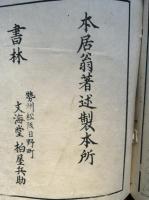 本居翁著述製本所
書林
勢州松阪日野町
文海堂 柏屋兵助